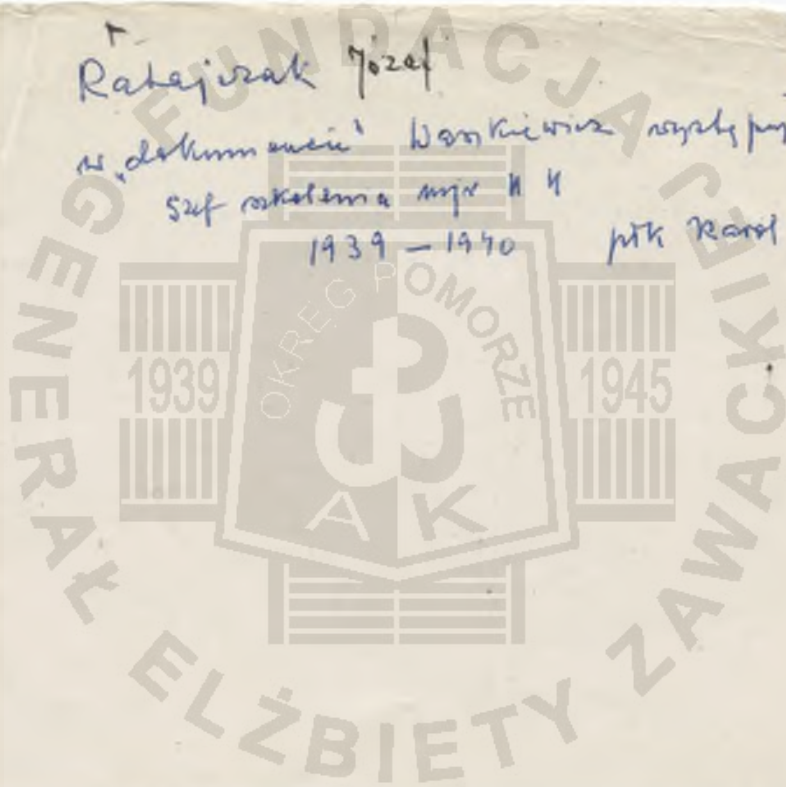 Ratajczak Józef
w „dokumencie" Waśkiewicz występuj
szef szkolenia mjr " "
1939 – 1940 płk Karol
FUNDACJA GENERAŁ ELŻBIETY ZAWACKIE
OKRĘG POMORZE
1939 1945
A K